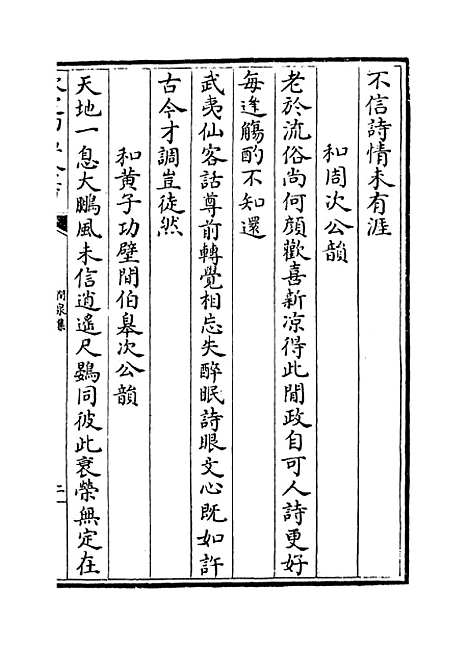 不信詩情未有涯
和周次公韻
老於流俗尚何顔歡喜新凉得此閒政自可人詩更好
毎逢觴酌不知還
武夷仙客話尊前轉覺相忘失醉眠詩眼文心既如許
古今才調豈徒然
和黄子功壁間伯皋次公韻
天地一息大鵬風未信逍遙尺鷃同彼此衰榮無定在
澗泉集